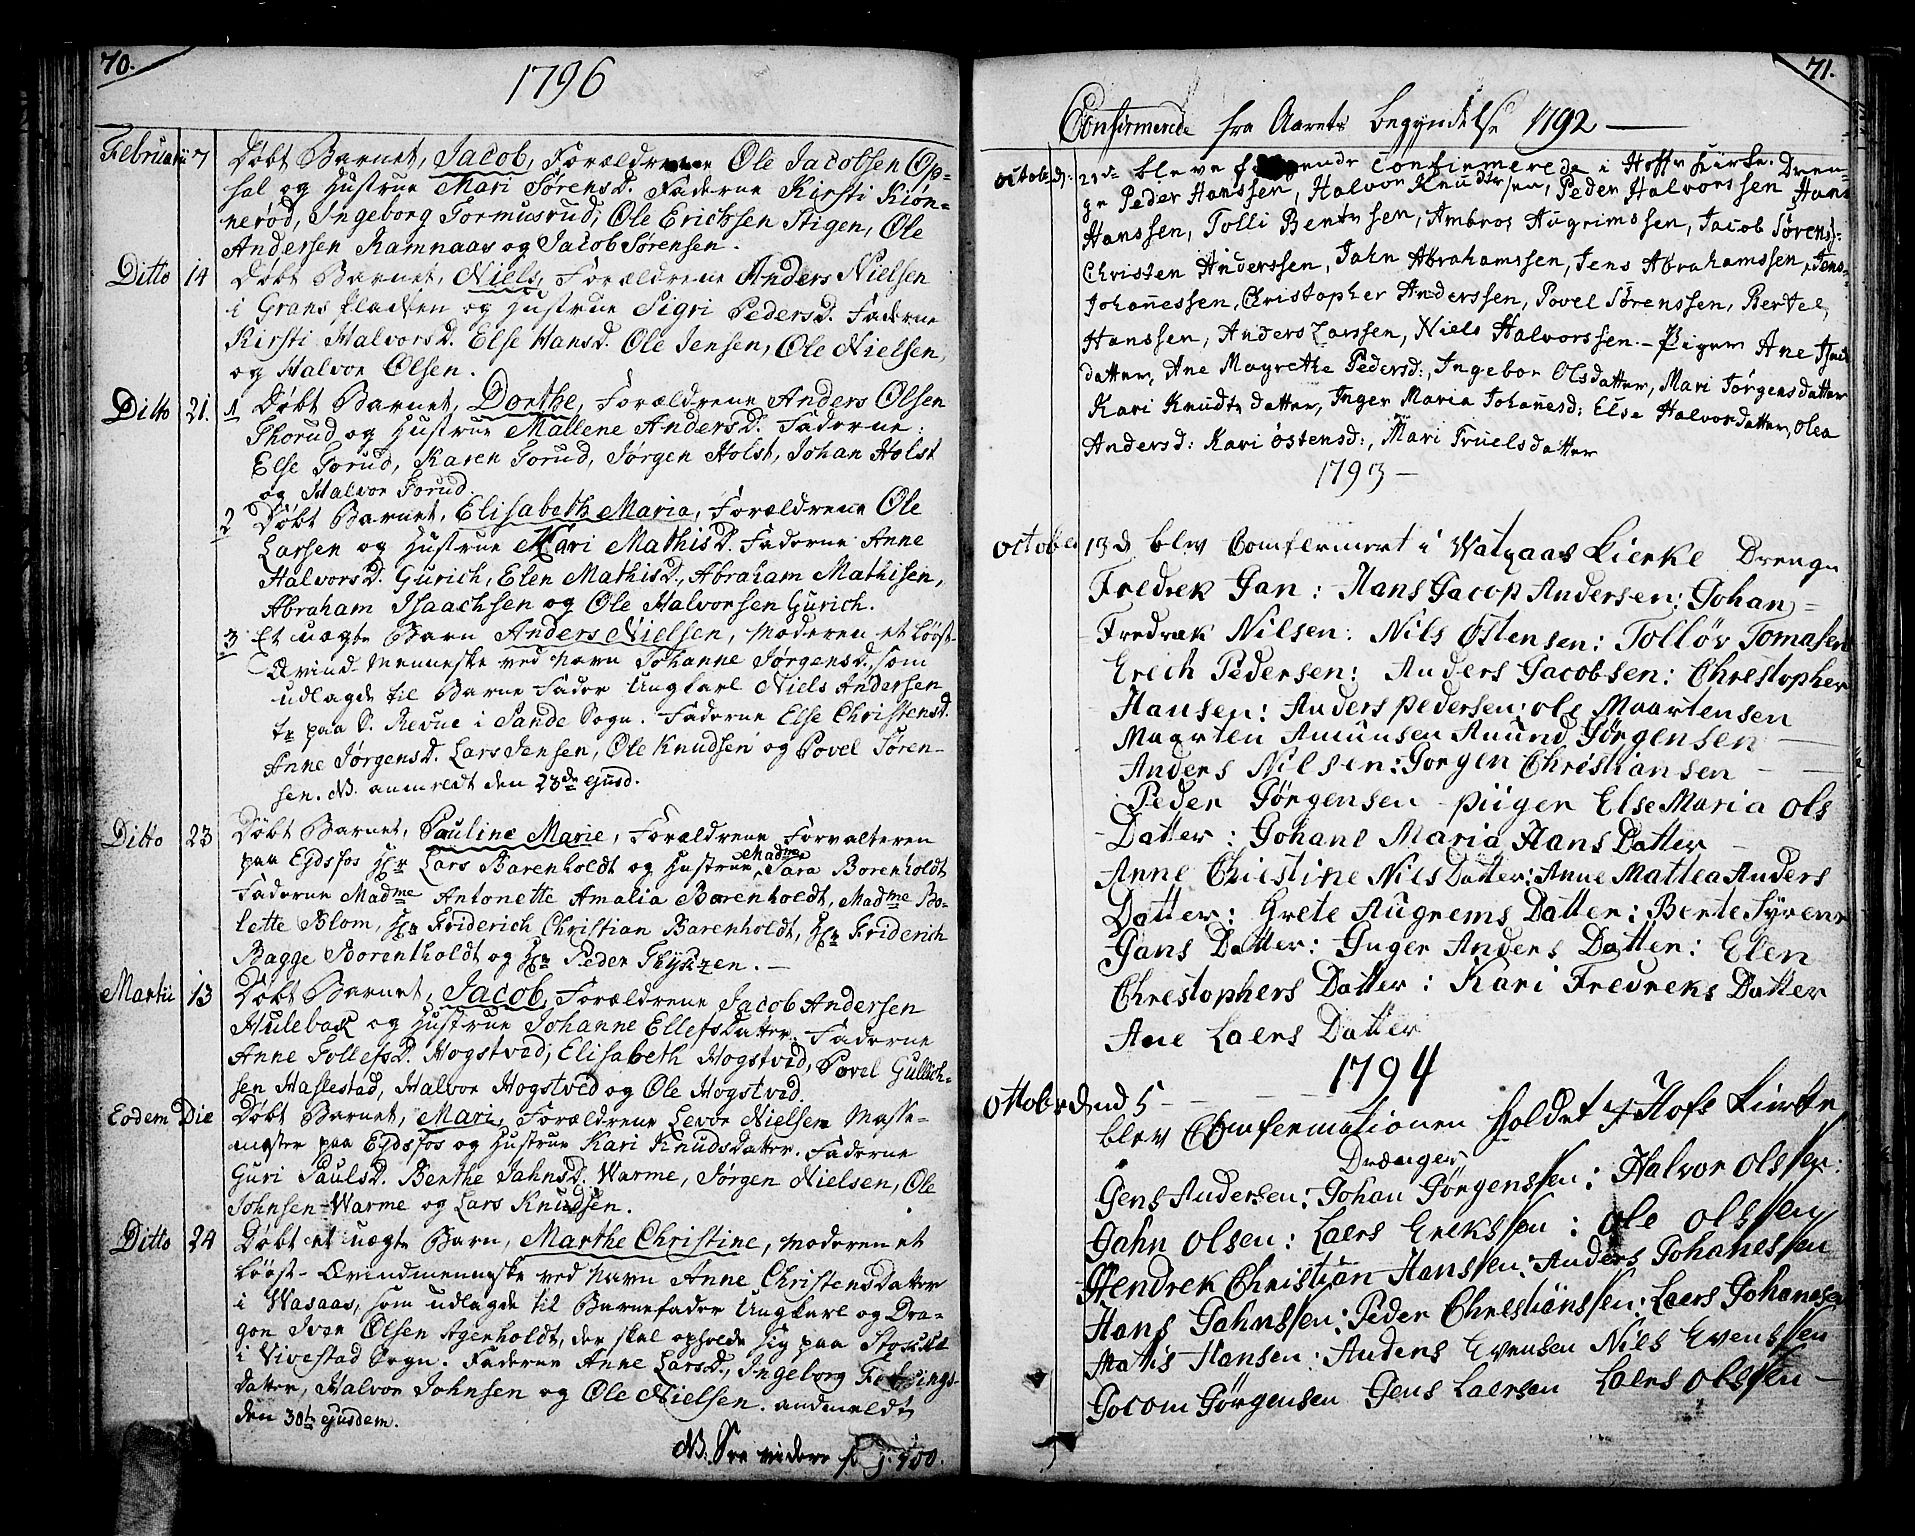 70.
1796
Februarii 7 Døbt Barnet, Jacob, Forældrene Ole Jacobsen Op-
sal og Hustrue Mari Sørensd. Fadderne Kirsti Kiøn-
nerød, Ingeborg Formusrud, Ole Erichsen Stigen, Ole
Andersen Ramnaas og Jacob Sørensen.
Ditto 14 Døbt Barnet, Niels, Forældrene Anders Nielsen
i Grans fladen og Hustrue Sigri Pedersd. Fadderne
Kirsti Halvorsd. Else Hansd. Ole Jensen, Ole Nielsen,
og Halvor Olsen.
Ditto 21. 1 Døbt Barnet, Dorthe, Forældrene Anders Olsen
Thorud og Hustrue Mallene Andersd. Fadderne:
Else Forud, Karen Forud, Jørgen Holst, Johan Holst
og Halvor Forud.
2 Døbt Barnet, Elisabeth Maria, Forældrene Ole
Larsen og Hustrue Kari Mathisd. Fadderne Anne
Halvorsd. Gurich, Elen Mathisd., Abraham Mathisen,
Abraham Isaachsen og Ole Halvorsen Gurich.
3 Et uægte Barn Anders Nielsen, Moderen et løøst
Qvind-Menneske ved Navn Johanne Jørgensd. som
udlagde til Barne Fader Ungkarl Niels Andersen
paa S. Revue i Sande Sogn. Fadderne Else Christensd.
Anne Jørgensd. Lars Jensen, Ole Knudsen og Povel Søren-
sen. NB. anmeldt den 23de ejusd.
Ditto 23 Døbt Barnet, Pauline Marie, Forældrene Forvalteren
paa Eydsfos Hr Lars Barenholdt og Hustrue Madme Sara Borenholdt
Fadderne Madme Antonette Amalia Barenholdt, Madme Bo-
lette Blom, Hr Friderich Christian Barenholdt, Hr Friderich
Bagge Borentholdt og Hr Peder Thyszen.
Martii 13 Døbt Barnet, Jacob, Forældrene Jacob Andersen
Hulebak og Hustrue Johanne Ellefsdatter. Fadderne
Anne Tollefsd. Hogstved, Elisabeth Hogstved, Povel Gullich-
sen Haslestad, Halvor Hogstved og Ole Hogstved.
Eodem Die Døbt Barnet, Mari, Forældrene Levor Nielsen Masse-
mester paa Eydsfos og Hustrue Kari Knudsdatter. Fadderne
Guri Paulsd. Berthe Jahnsd. Warme, Jørgen Nielsen, Ole
Johnsen Warme og Lars Knudsen.
Ditto 24 Døbt et uægte Barn, Marthe Christine, Moderen et
løøst-Qvindmenneske ved Navn Anne Christensdatter
i Wasaas, som udlagde til Barnefader Ungkarl og Dra-
gon Iver Olsen Agerholdt, der skal opholde sig paa
i Vivestad Sogn. Fadderne Anne Larsd., Ingeborg
datter, Halvor Johnsen og Ole Nielsen. anmeldt
den 30te ejusdem.
NB. See videre pag. 100.
71.
Confirmerede fra Aarets begyndelse 1792
October d: 21de bleve følgende confirmerede i Hoffs Kirke. Dren-
ge Peder Hanssen, Halvor Knudtssen, Peder Halvorssen Hans
Hanssen, Tolli Bentssen, Ambros Augrimssen, Jacob Sørens:
Christen Anderssen, Jahn Abrahamssen, Jens Abrahamssen, Jens
Johanessen, Christopher Anderssen, Povel Sørenssen, Bertel
Hanssen, Anders Larssen, Niels Halvorssen - Piger Ane
datter, Ane Magrethe Pedersd:, Ingebor Olsdatter, Mari Jørgensdatter
Kari Knudtsdatter, Inger Maria Johanesd: Else Halvorsdatter, Olea
Andersd: Kari Østensd:, Mari Truelsdatter
1793 -
October 13 d blev Comfermert i Vatqaas Kierke Drenge
Fredrek Jan: Hans Jacop Andersen: Johan
Fredrek Nilsen: Nils Ostensen: Tolløv Tomasen
Erich Pedersen: Anders Jacobsen: Chrestopher
Hansen: Anders pedersen: ole Maartensen
Maarten Amunsen Amund Jørgensen
Anders Nilsen: Jorgen Christiansen
Peder Jørgensen - piiger Else Maria ols
Datter: Johane Maria Hans Datter
Anne Chrestine Nils Datter: Anne Mattea Anders
Datter: Grete Augrems Datter: Berte Syrene
Jans Datter: Inger Anders Datter: Elen
Chrestophers Datter: Kari Fredreks Datter
Ane Laers Datter
1794
Ottober dend 5
blev Comfermationen holdet i Hofs Kierke
Drænger
Jens Andersen: Johan Jørgenssen: Halvor olssen:
Jahn olsen: Laers Erekssen: ole olssen
Hendrek Christian Hanssen: Anders Johanessen
Hans Jahnssen: Peder Chrestianssen: Laers Johanesen
Mattis Hansen: Anders Evensen Nils Evenssen
Jocom Jørgensen Jens Laersen Laers olssen -